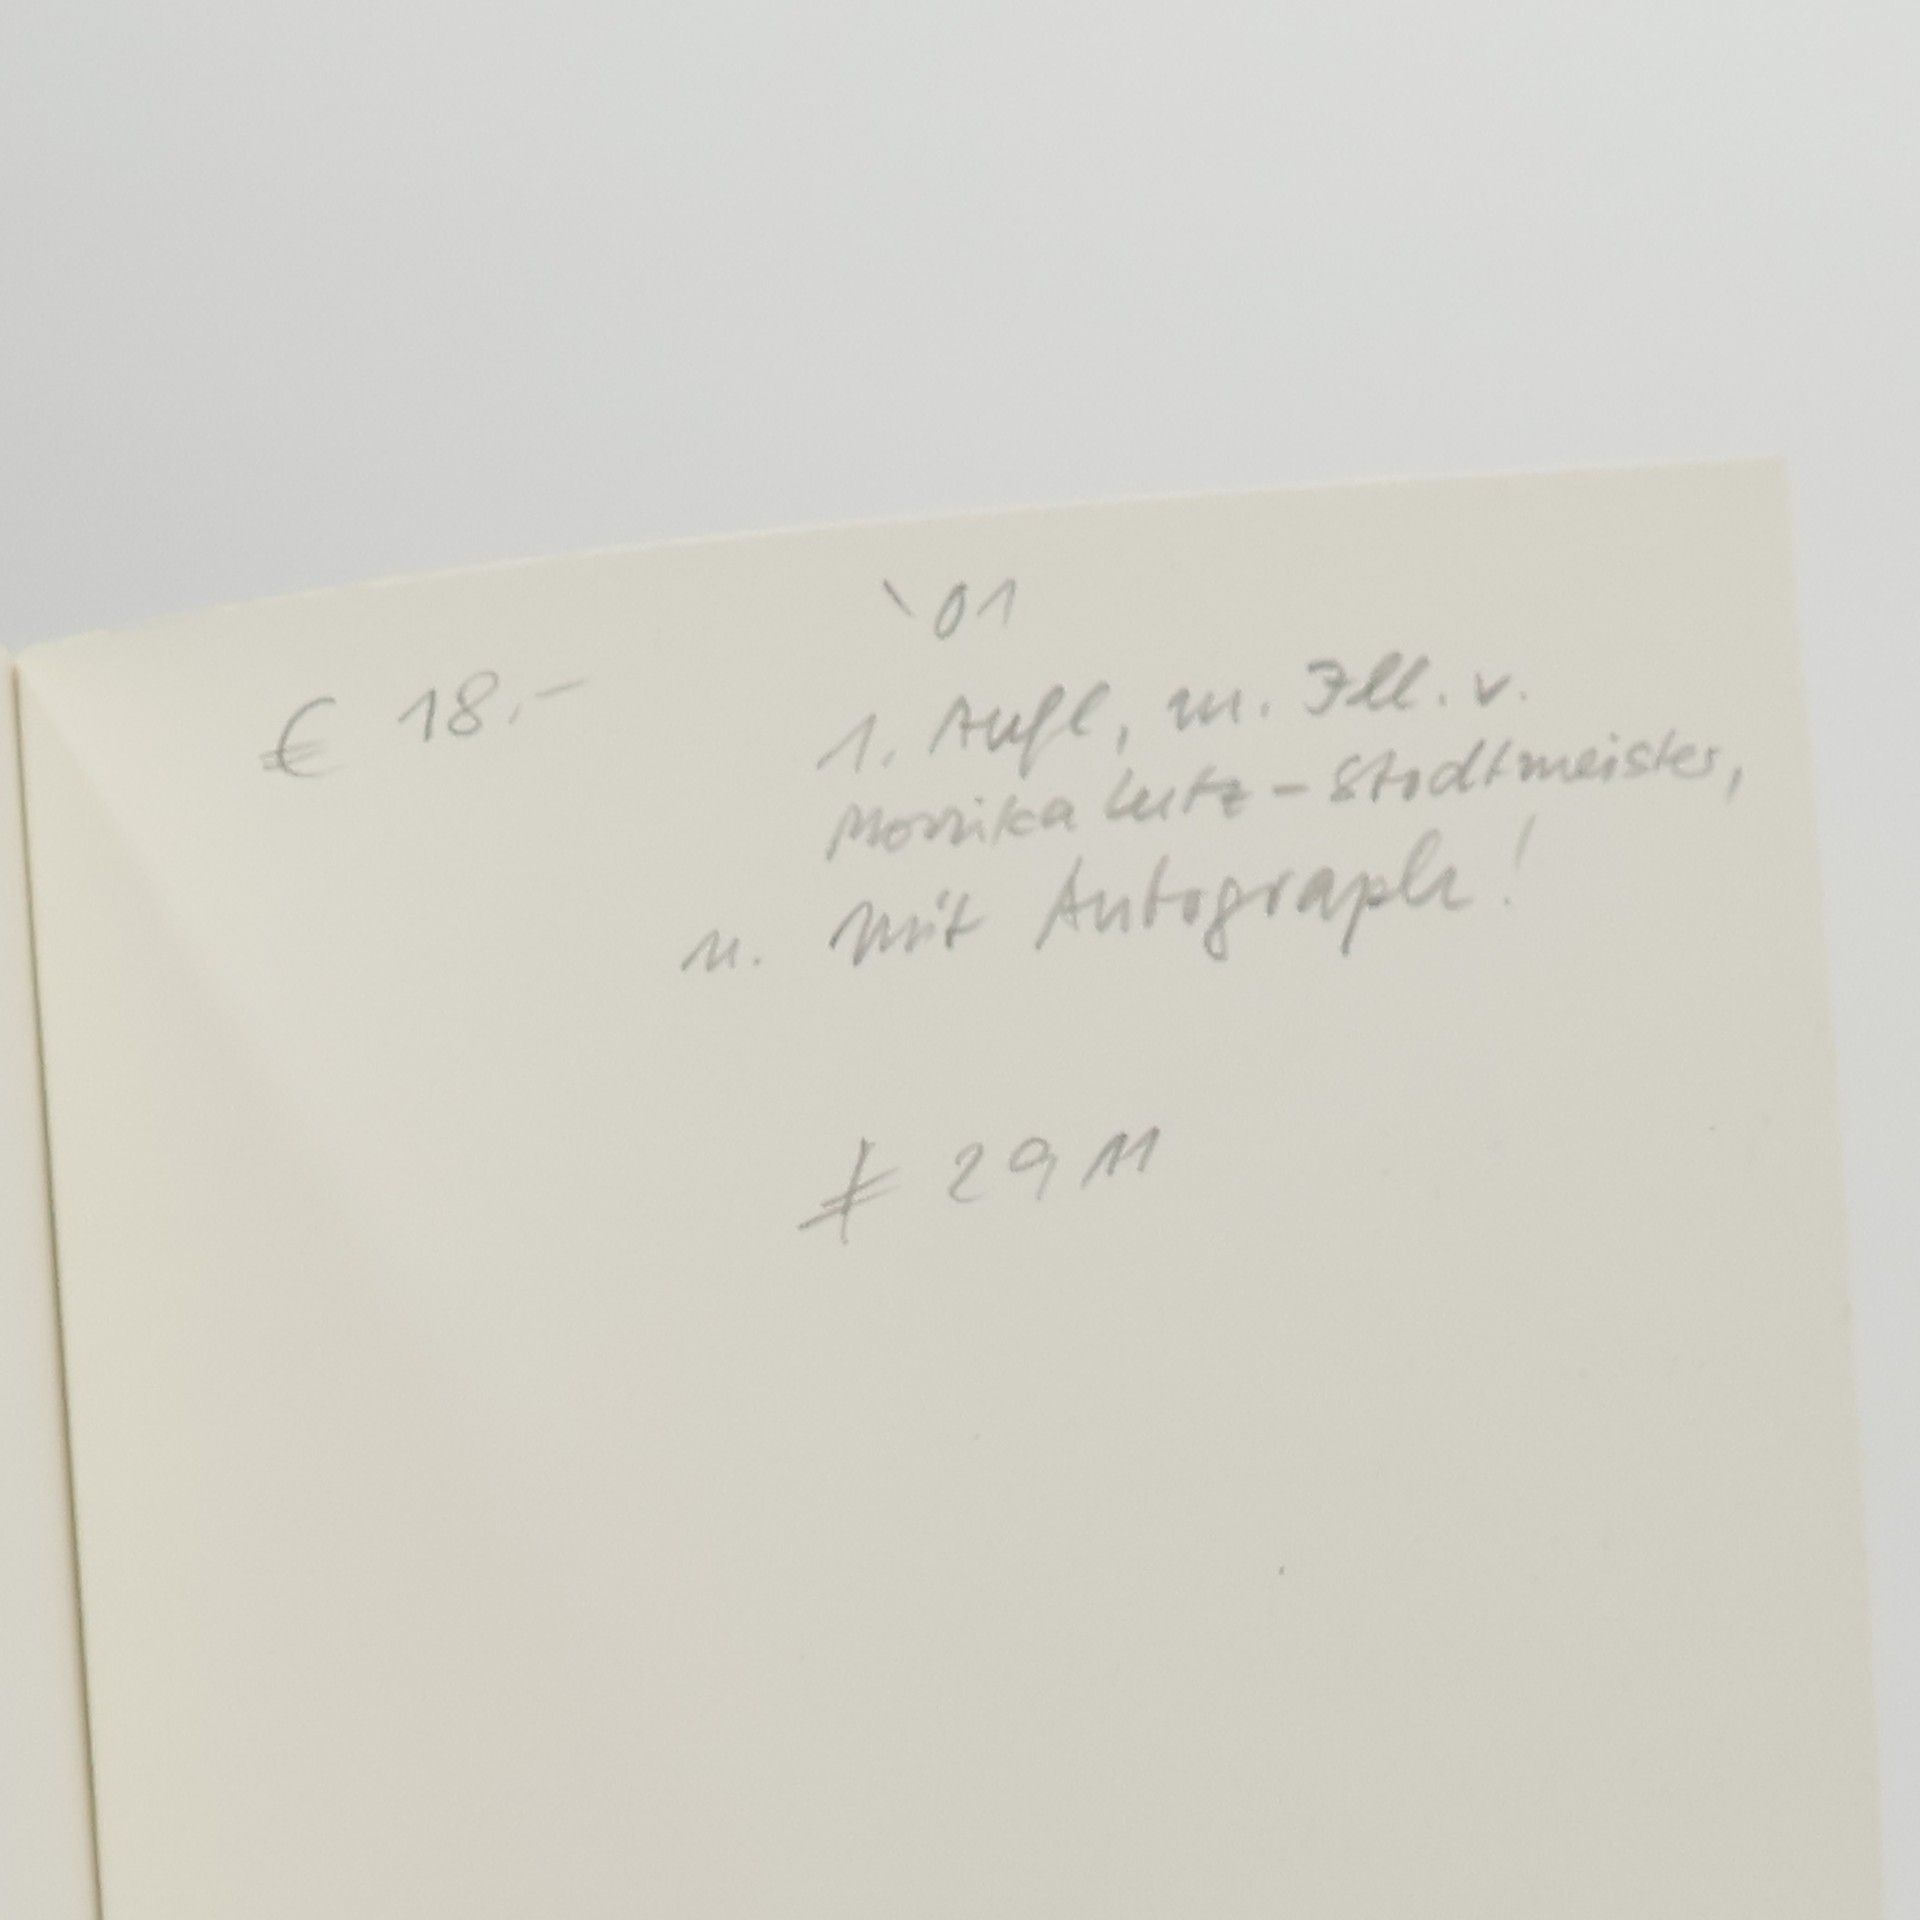 '01
€ 18,-
1. Aufl, m. Ill. v.
Monika Lutz-Stadtmeister,
u. mit Autograph!
2911